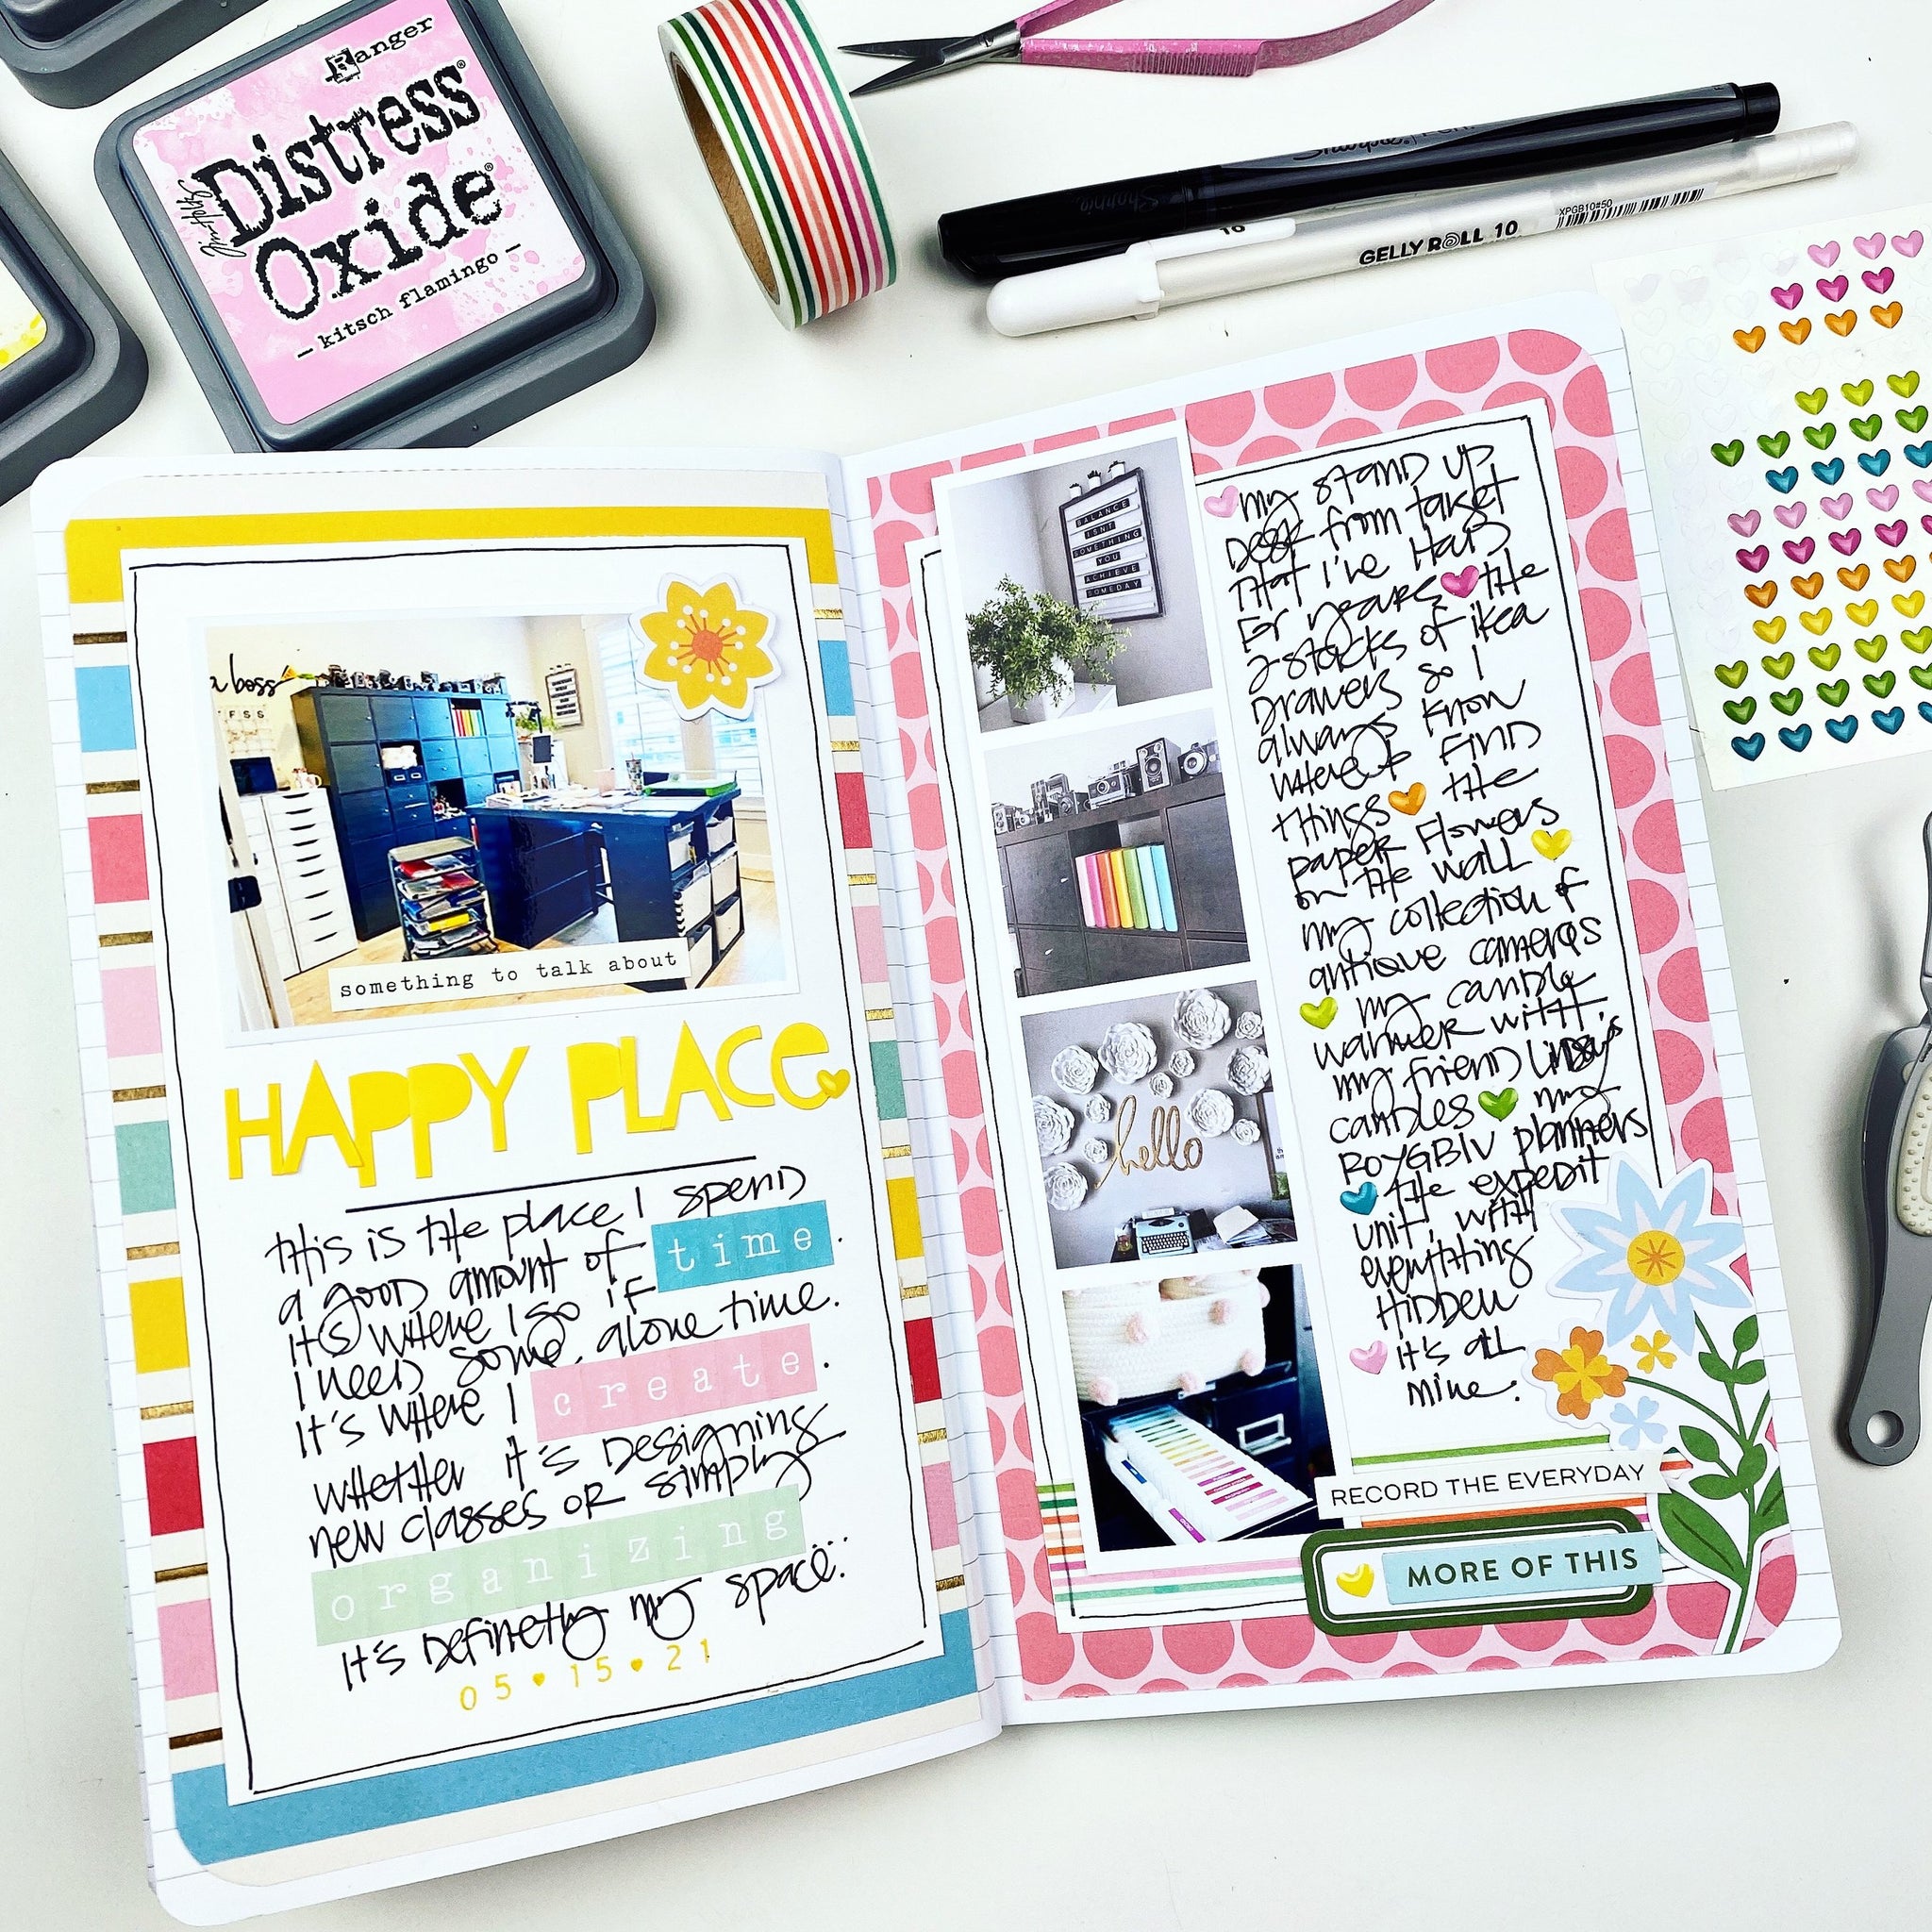 Ranger
Distress®
Oxide®
– kitsch flamingo –
Sharpie
Sharpie® | Pen.
10
GELLY ROLL 10
XPGB10#50
a boss
T F S S
something to talk about
HAPPY PLACE
this is the place I spend
a good amount of time.
it's where I go if
I need some alone time.
It's where I create.
whether it's designing
new classes or simply
organizing
it's definetly my space.
05♥15♥21
BALANCE
ISN'T
SOMETHING
YOU
ACHIEVE
SOMEDAY
hello
my stand up
desk from target
that I've had
for years the
2 stacks of ikea
drawers so I
always know
where to find
things the
paper flowers
on the wall
my collection of
antique cameras
my candle
warmer with
my friend Lindsy's
candles my
ROYGBIV planners
the expedit
unit, with
everything
hidden
it's all
mine.
RECORD THE EVERYDAY
MORE OF THIS